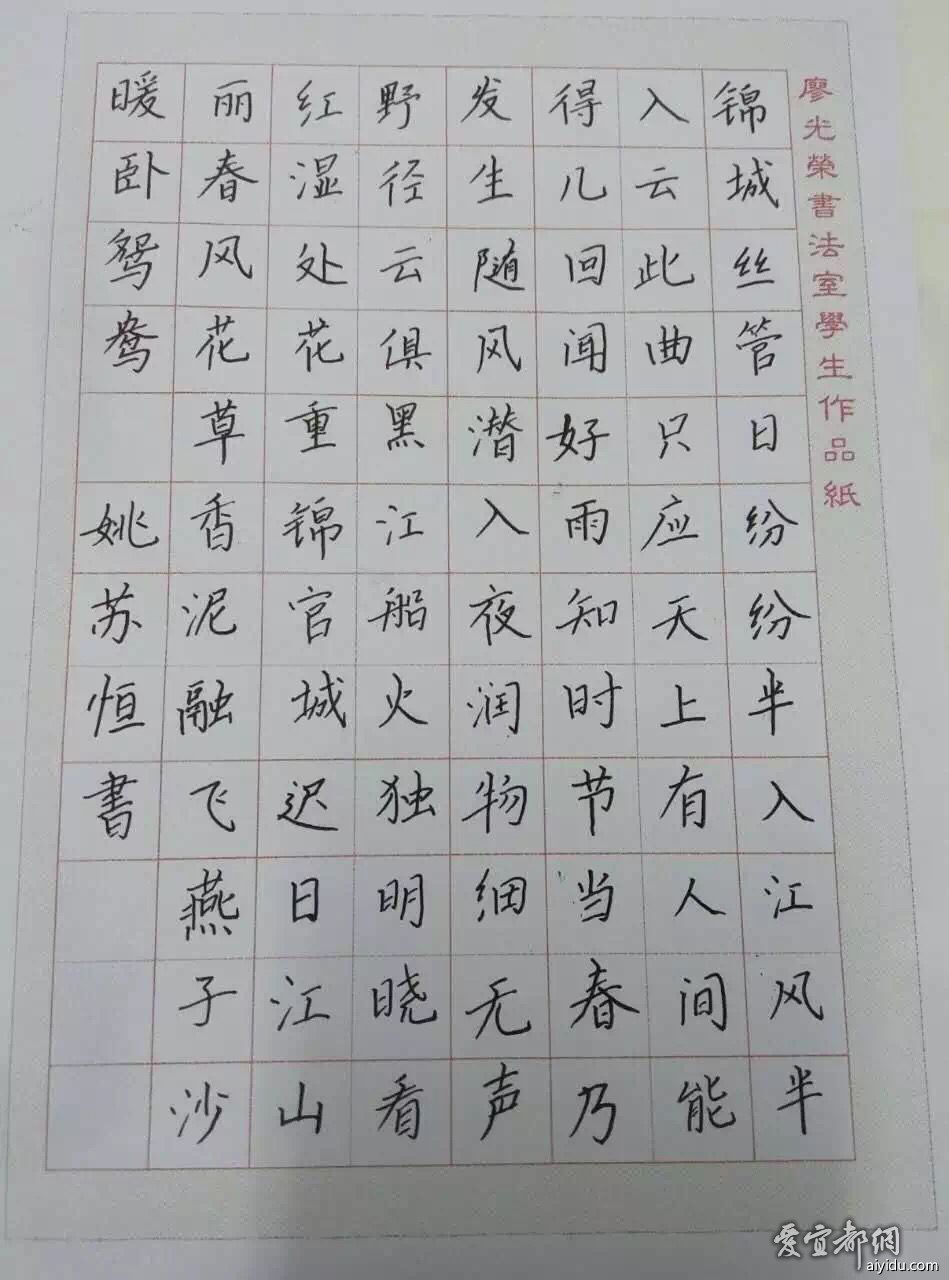 廖光榮書法室學生作品紙
锦城丝管日纷纷半入江风半
入云此曲只应天上有人间能
得几回闻好雨知时节当春乃
发生随风潜入夜润物细无声
野径云俱黑江船火独明晓看
红湿处花重锦官城迟日江山
丽春风花草香泥融飞燕子沙
暖卧鸳鸯 姚苏恒書
爱宜都網
aiyidu.com